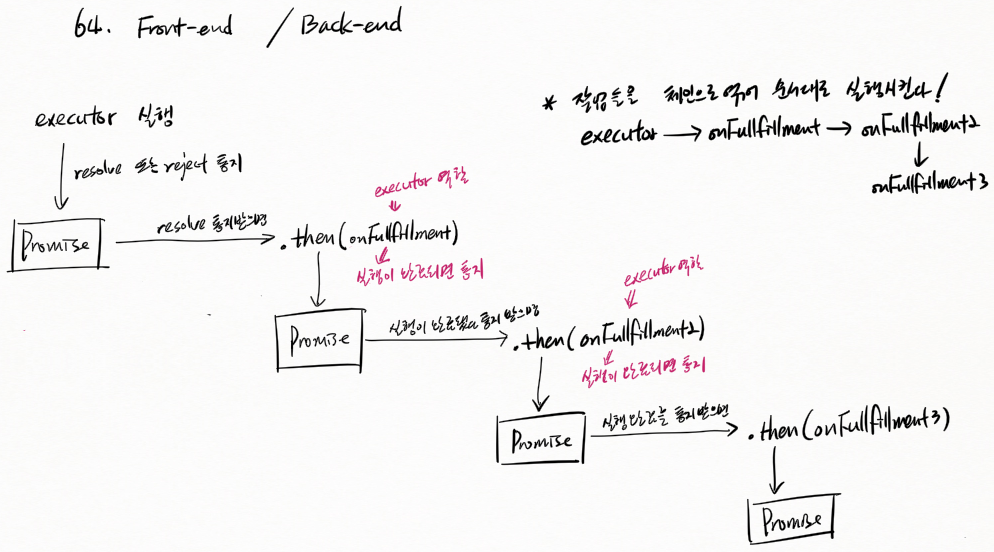 64. Front-end / Back-end
* 작업들을 체인으로 엮어 순서대로 실행시킨다!
executor → onFullfillment → onFullfillment2
↓
onFullfillment3
executor 실행
resolve 또는 reject 통지
Promise
resolve 통지받으면
executor 역할
.then(onFullfillment)
실행이 완료되면 통지
Promise
실행이 완료됐다 통지 받으면
executor 역할
.then(onFullfillment2)
실행이 완료되면 통지
Promise
실행완료를 통지받으면
.then(onFullfillment3)
Promise